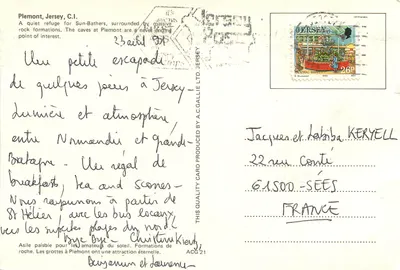 Plemont, Jersey, C.I.
A quiet refuge for Sun-Bathers, surrounded by
rock formations. The caves at Plemont are a
point of interest.
23 août
Une petite escapade
de quelques jours à Jersey -
Lumière et atmosphère,
entre Normandie et Grande-
Bretagne - Un régal de
breakfasts, tea and scones -
Nous rayonnons à partir de
St Hélier, avec les bus locaux,
vers les superbes plages du nord
Bye Bye - Christine
Benjamin et
Asile paisible pour les amateurs du soleil. Formations de
roche. Les grottes à Plemont ont une attraction éternelle.
ACG 21
THIS QUALITY CARD PRODUCED BY A.C. GALLIE LTD. JERSEY
Jersey
JERSEY
Jacques et Labiba KERYELL
22 rue Conté
61500 - SÉES
FRANCE